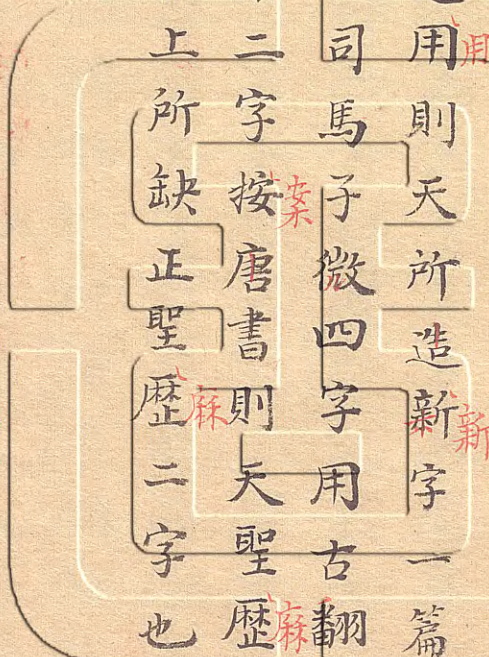 用則天所造新字一篇
司馬子微四字用古翻
二字按唐書則天聖歷
上所缺正聖歷二字也
用
新
案
麻
麻